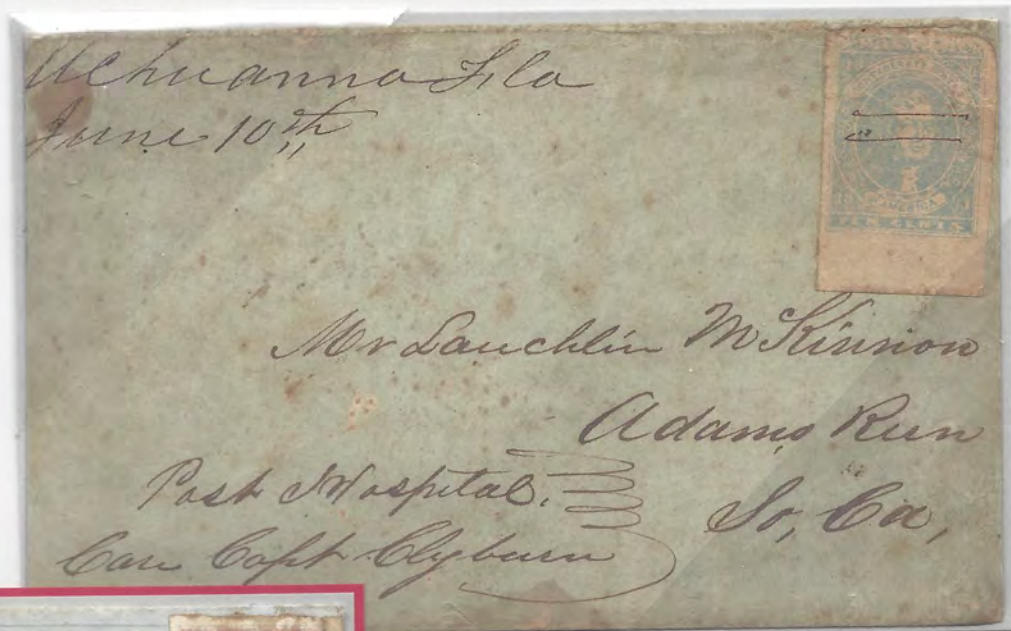 Uchuanna Fla
June 10th
AMERICA
TEN CENTS
Mr Lauchlin McKinnon
Adams Run
Post Hospital. So, Ca,
Care Capt Clyburn